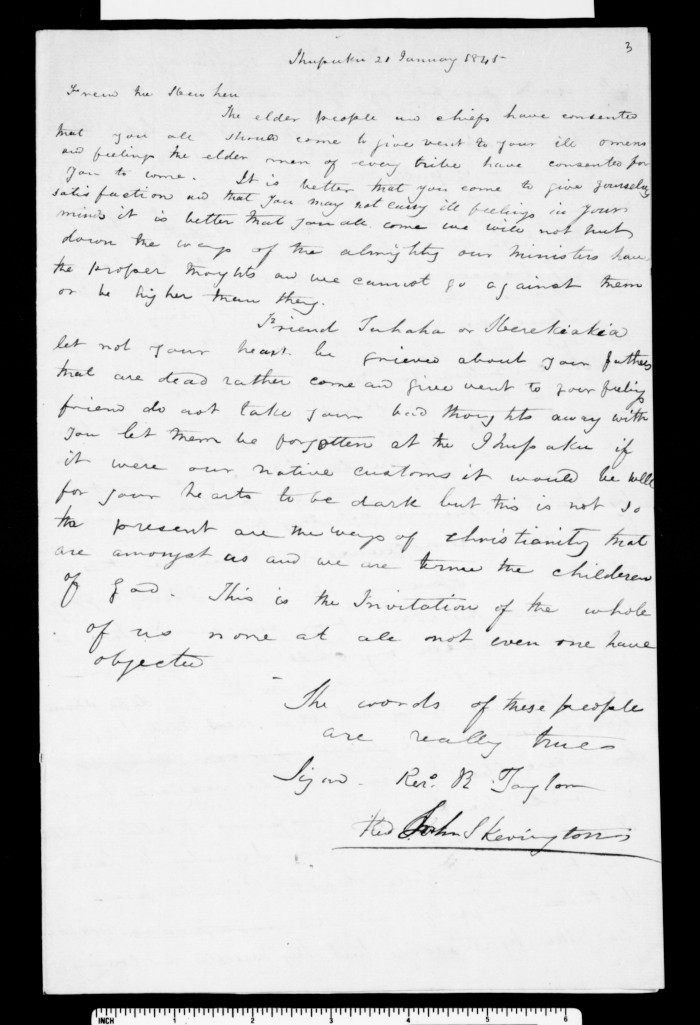 3
Ihupuku 21 January 1845
Friend the
The elder people and chiefs have consented
that you all should come to give vent to your ill omens
and feelings the elder men of every tribe have consented for
you to come. It is better that you come to give yourselves
satisfaction and that you may not carry ill feelings in your
minds it is better that you all come we will not put
down the ways of the almighty our ministers have
the proper thoughts and we cannot go against them
or be higher than they.
Friend Tuhaha or Herekiekie
let not your heart be grieved about your fathers
that are dead rather come and give vent to your feelings
friend do not take your bad thoughts away with
you let them be forgotten at the Ihupuku if
it were our native customs it would be well
for your hearts to be dark but this is not so
the present are the ways of christianity that
are amongst us and we are termed the children
of God. This is the Invitation of the whole
of us none at all not even one have
objected
The words of these people
are really true
Signed Revd. R Taylor
Revd John Skevington
INCH 1 2 3 4 5 6